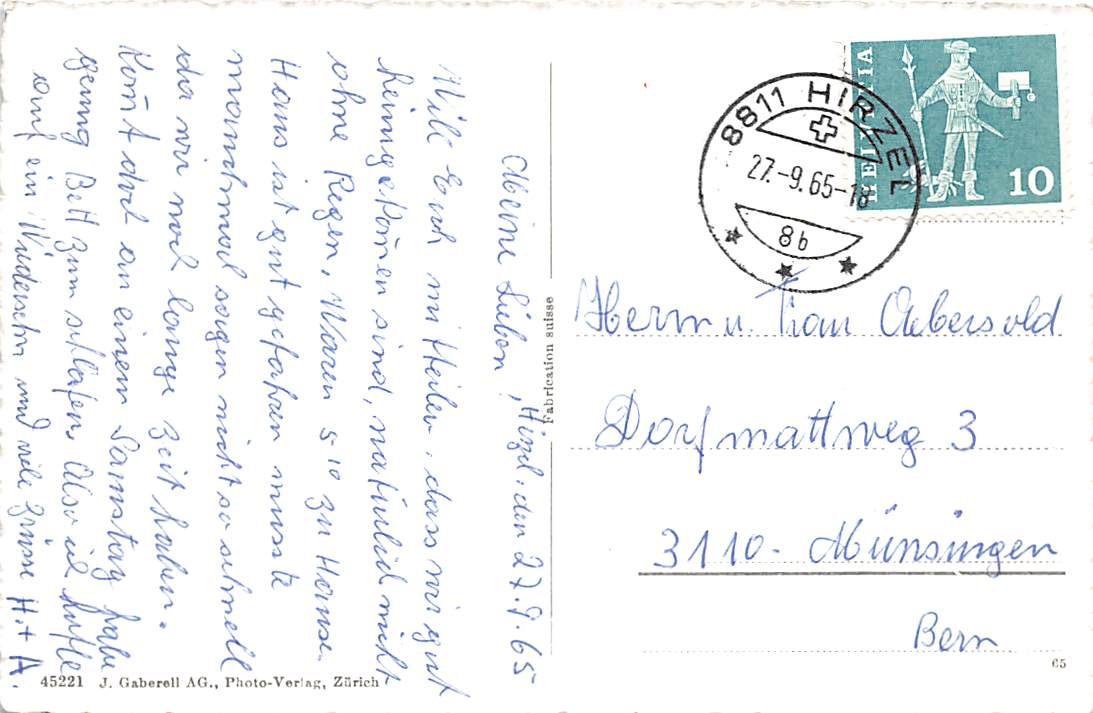 Hirzel, den 27.9.65
Meine Lieben
Will Euch mitteilen, dass wir gut
heimgekom̄en sind, natürlich nicht
ohne Regen. Waren 5¹⁰ zu Hause.
Hans ist gut gefahren musste
manchmal sagen nicht so schnell
da wir noch lange Zeit haben.
Kom̄t doch an einem Samstag habe
genug Bett zum schlafen. Also ich hoffe
auf ein Wiedersehn und viele Grüsse H. + A.
45221 J. Gaberell AG., Photo-Verlag, Zürich
Fabrication suisse
8811 HIRZEL
27.-9.65-18
8b
HELVETIA
10
Herrn u. Frau Aebersold
Dorfmattweg 3
3110 - Münsingen
Bern
65